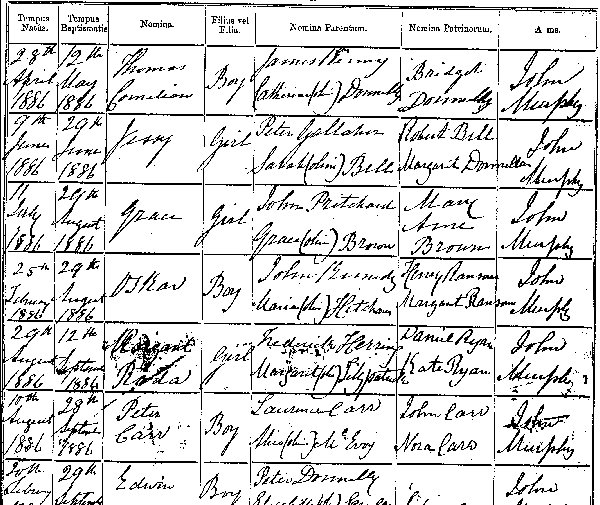 Tempus Natus. Tempus Baptismatis Nomina. Filius vel Filia. Nomina Parentum. Nomina Patrinorum. A me.
28th April 1886 12th May 1886 Thomas Cornelian Boy James Kenny Catherine (olim) Donnelly Bridget Donnelly John Murphy
9th June 1886 29th June 1886 Jenny Girl Peter Gallaher Sarah (olim) Bell Robert Bell Margaret Donnellan John Murphy
11 July 1886 29th August 1886 Grace Girl John Pritchard Grace (olim) Brown Mary Ann Brown John Murphy
25th February 1886 29th August 1886 Oskar Boy John Kennedy Maria (olim) Hitcham Henry Ransom Margaret Ransom John Murphy
29th August 1886 12th September 1886 Rosa Girl Frederick Herring Margaret (olim) Fitzpatrick Daniel Ryan Kate Ryan John Murphy
10th August 1886 29th Septem 1886 Peter Carr Boy Laurence Carr (olim) McEvoy John Carr Nora Carr John Murphy
29th September Edwin Boy Peter Donnelly John